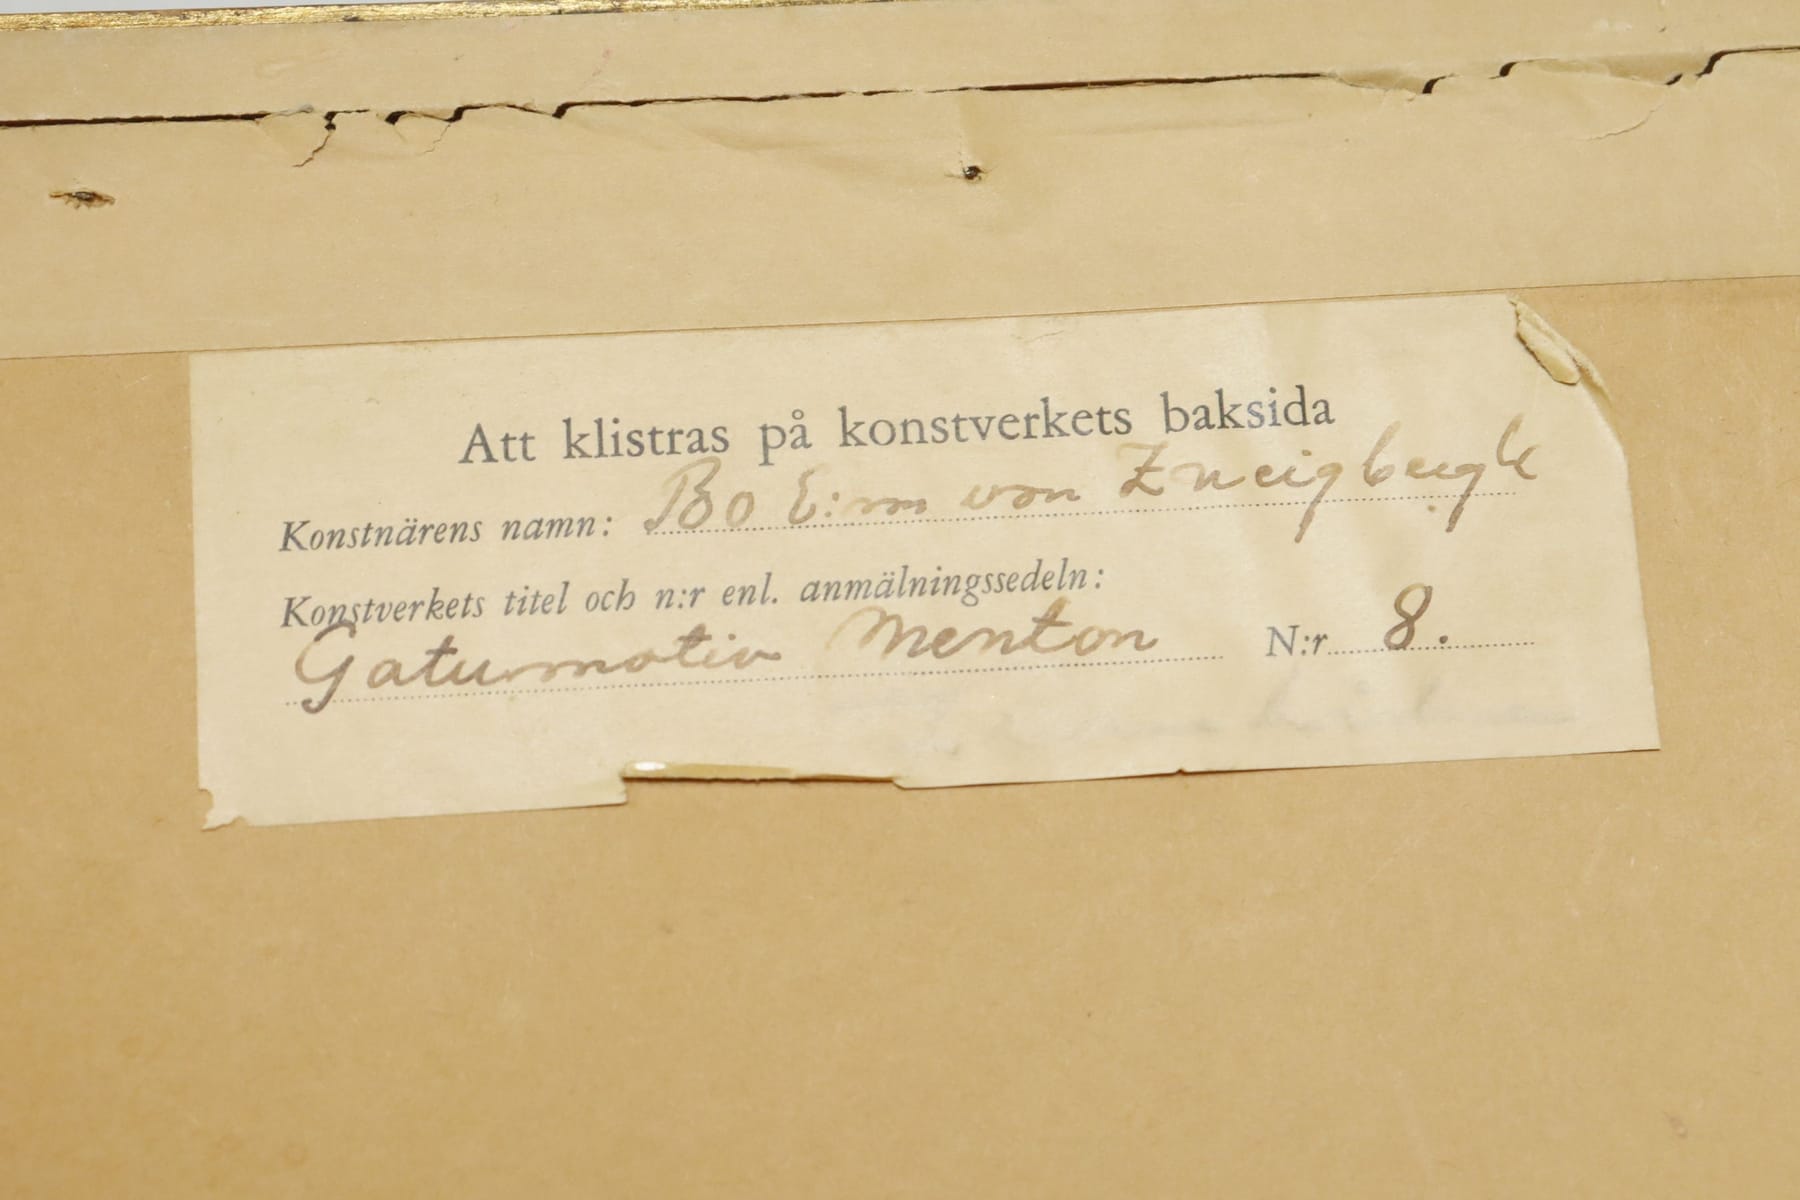 Att klistras på konstverkets baksida
Konstnärens namn: Bo E:son von Zweigbergk
Konstverkets titel och n:r enl. anmälningssedeln:
Gatumotiv Menton N:r 8.